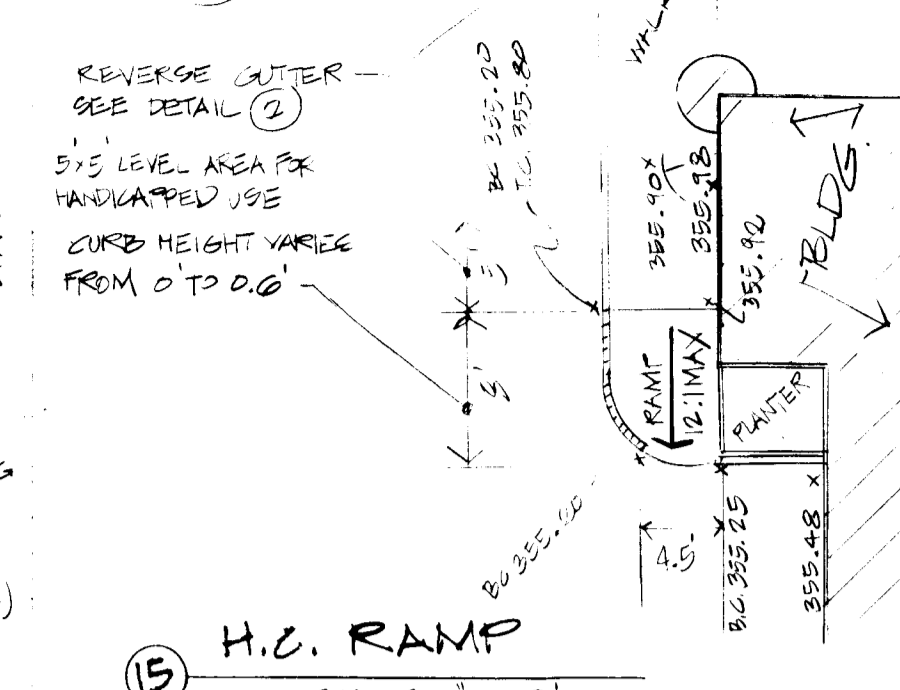 REVERSE GUTTER
SEE DETAIL 2
5'x5' LEVEL AREA FOR
HANDICAPPED USE
CURB HEIGHT VARIES
FROM 0' TO 0.6'
BC 355.20
T.C. 355.80
355.90
355.98
355.92
BLDG.
5'
8'
RAMP
12:1 MAX
PLANTER
4.5'
B.C. 355.25
355.48
BC 355.
15
H.C. RAMP